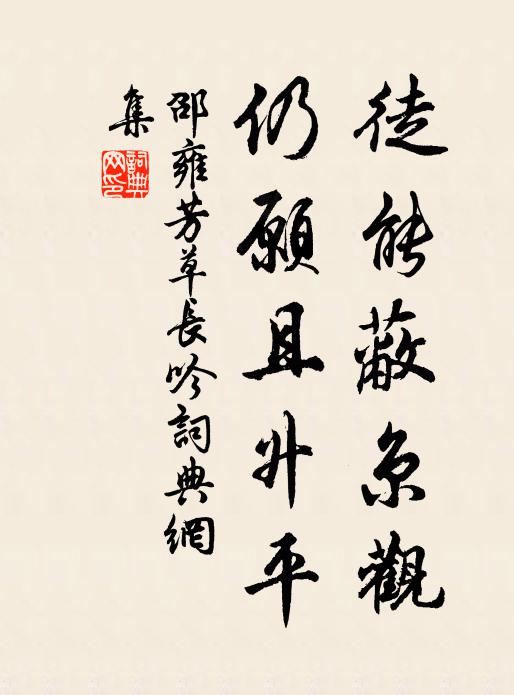 徒能蔽京觀
仍願且升平
邵雍芳草長吟詞典網
集
詞典網印